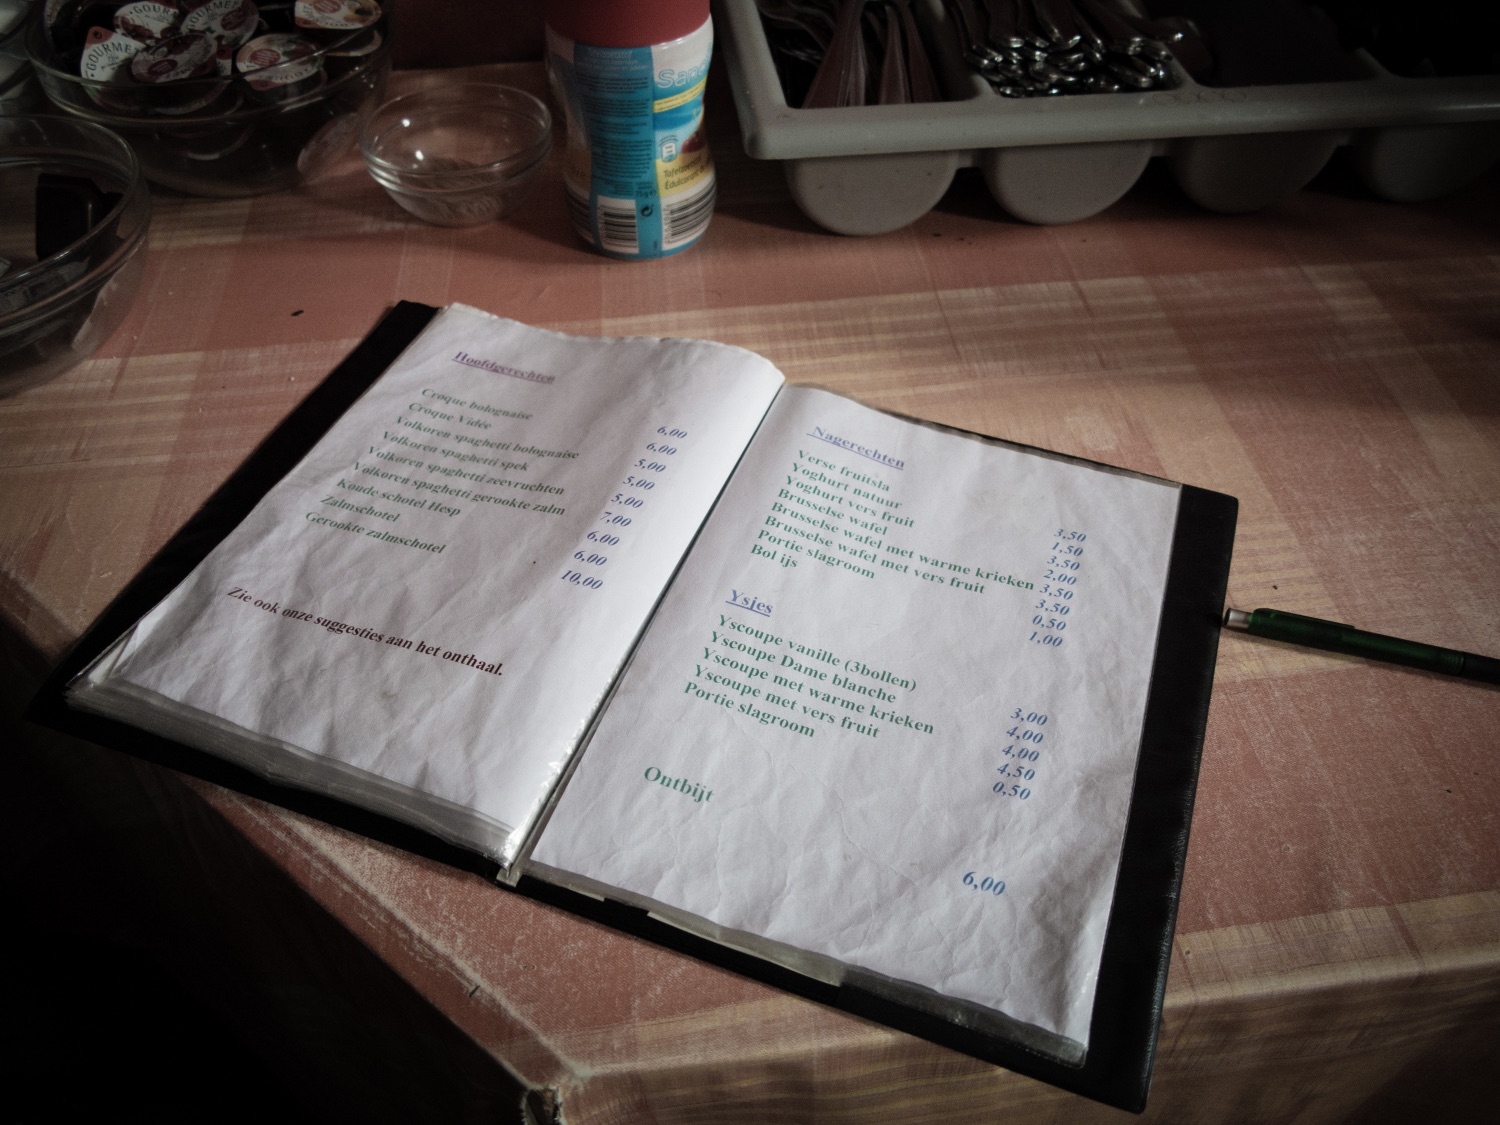 GOURMET
GOURMET
Hoofdgerechten
Croque bolognaise 6,00
Croque Vidée 6,00
Volkoren spaghetti bolognaise 5,00
Volkoren spaghetti spek 5,00
Volkoren spaghetti zeevruchten 5,00
Volkoren spaghetti gerookte zalm 7,00
Koude schotel Hesp 6,00
Zalmschotel 6,00
Gerookte zalmschotel 10,00
Zie ook onze suggesties aan het onthaal.
Nagerechten
Verse fruitsla 3,50
Yoghurt natuur 1,50
Yoghurt vers fruit 3,50
Brusselse wafel 2,00
Brusselse wafel met warme krieken 3,50
Brusselse wafel met vers fruit 3,50
Portie slagroom 0,50
Bol ijs 1,00
Ysjes
Yscoupe vanille (3bollen) 3,00
Yscoupe Dame blanche 4,00
Yscoupe met warme krieken 4,00
Yscoupe met vers fruit 4,50
Portie slagroom 0,50
Ontbijt 6,00